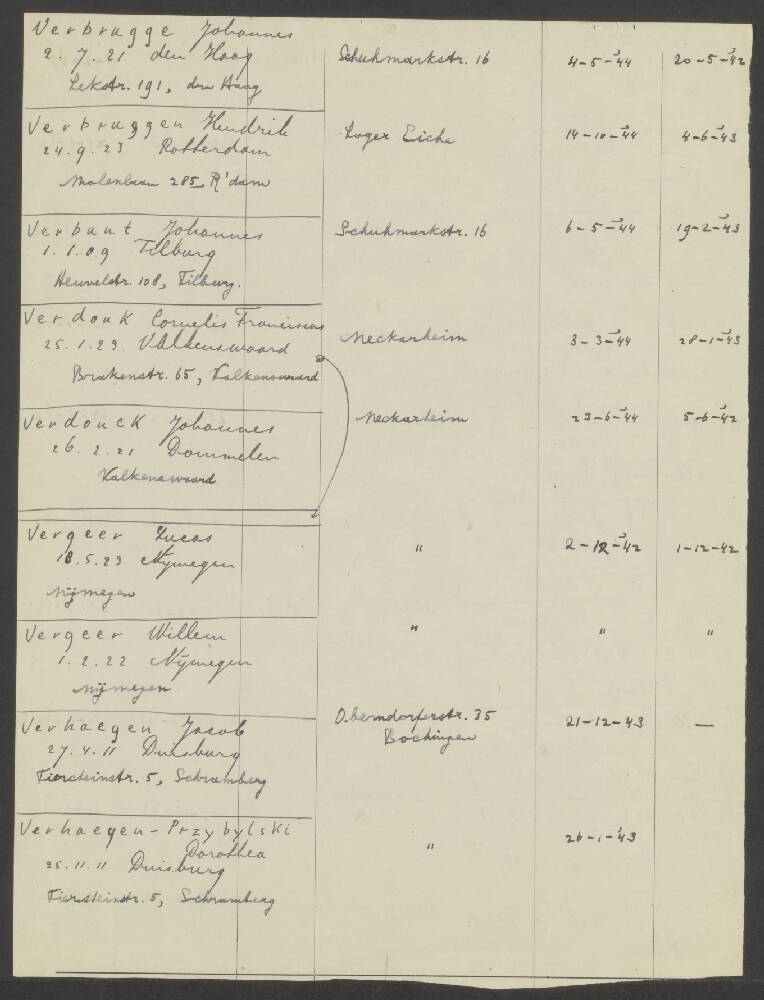 Verbrugge Johannes
2.7.21 den Haag Schuhmarkstr. 16 4-5-'44 20-5-'42
Lekstr. 191, den Haag
Verbruggen Hendrik
24.9.23 Rotterdam Lager Eiche 14-10-'44 4-6-'43
Molenlaan 285, R'dam
Verbunt Johannes Schuhmarkstr. 16 6-5-'44 19-2-'43
1.1.09 Tilburg
Heuvelstr. 108, Tilburg.
Verdonk Cornelis Franciscus
25.1.23 Valkenswaard Neckarheim 3-3-'44 28-1-'43
65, Valkenswaard
Verdonck Johannes Neckarheim 23-6-'44 5-6-'42
26.2.21 Dommelen
Valkenswaard
Vergeer Lucas " 2-12-'42 1-12-42
18.5.23 Nijmegen
Nijmegen
Vergeer Willem " " "
1.2.22 Nijmegen
Nijmegen
Verhaegen Jacob Oberndorferstr. 35 21-12-43 —
27.4.11 Duisburg Bochingen
Tiersteinstr. 5, Schramberg
Verhaegen-Przybylski " 26-1-'43
Dorothea
25.11.11 Duisburg
Tiersteinstr. 5, Schramberg